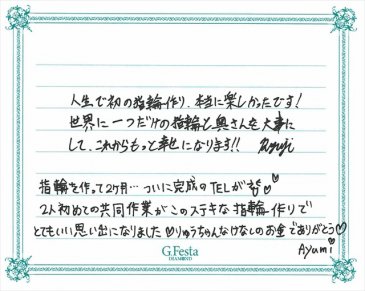 人生で初の指輪作り、本当に楽しかったです!
世界に一つだけの指輪と奥さんを大事に
して、これからもっと幸せになります!! Ryuji
指輪を作って2ヶ月…ついに完成のTELが♡
2人初めての共同作業がこのステキな指輪作りで
とてもいい思い出になりました♡りゅうちゃんなけなしのお金でありがとう♡
Ayumi
G.Festa
DIAMOND